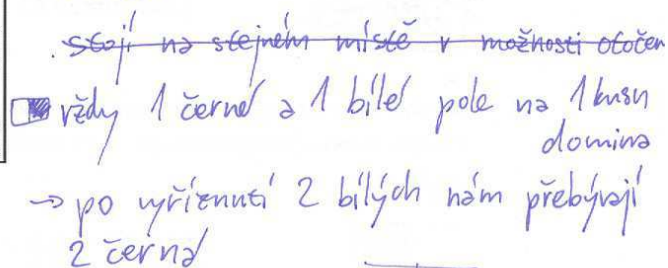 . stojí na stejném místě v možnosti otočen
vždy 1 černé a 1 bílé pole na 1 kusu
domina
→ po vyříznutí 2 bílých nám přebývají
2 černá